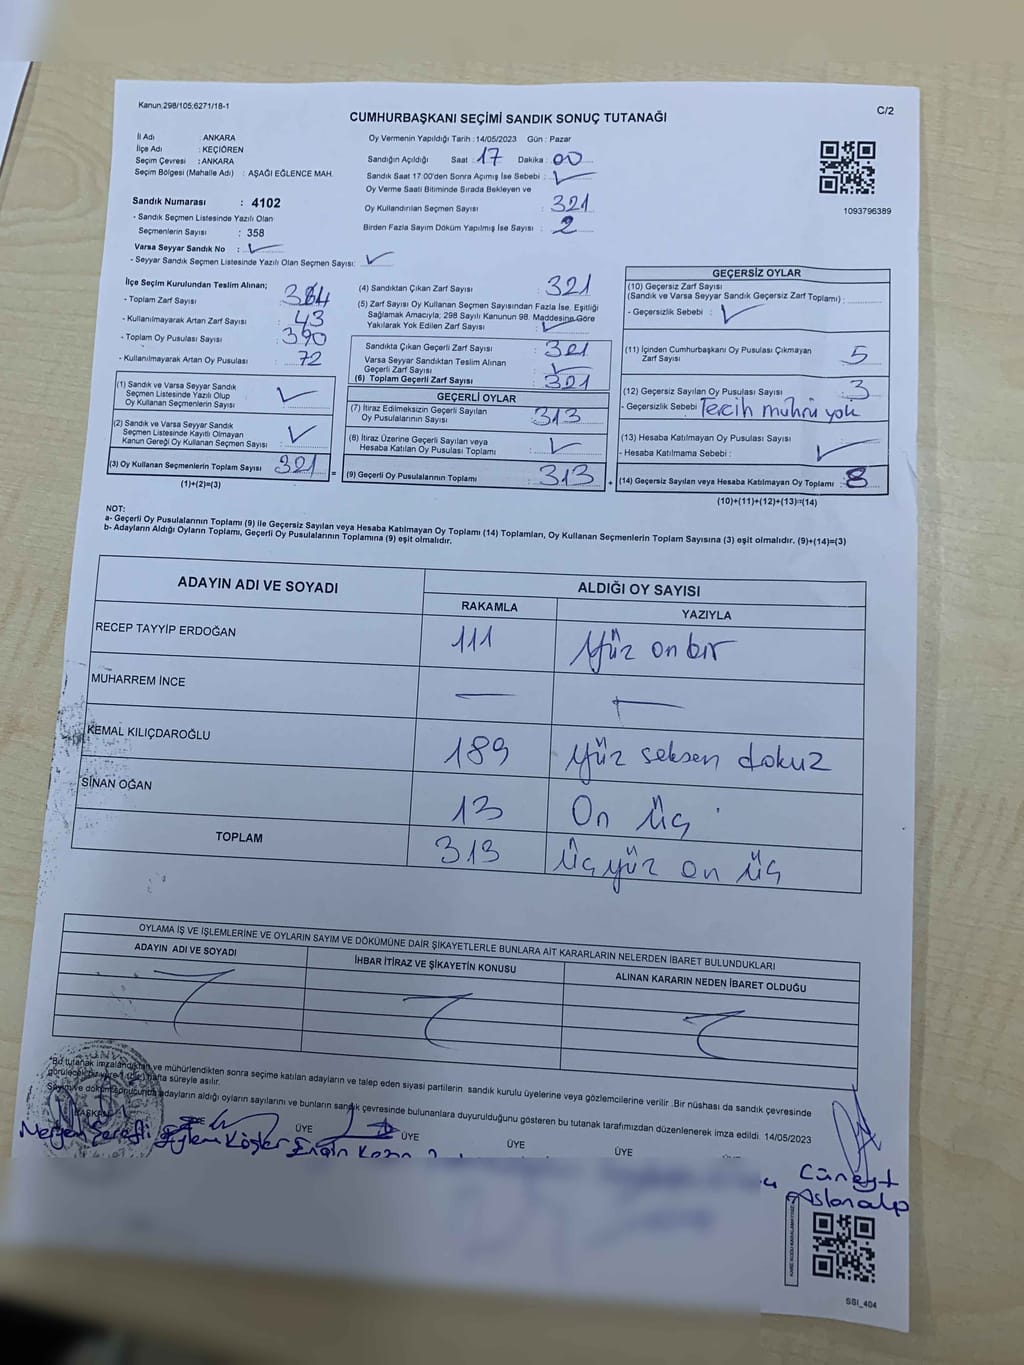 Kanun.298/105;6271/18-1
C/2
CUMHURBAŞKANI SEÇİMİ SANDIK SONUÇ TUTANAĞI
İl Adı : ANKARA
İlçe Adı : KEÇİÖREN
Seçim Çevresi : ANKARA
Seçim Bölgesi (Mahalle Adı) : AŞAĞI EĞLENCE MAH.
Oy Vermenin Yapıldığı Tarih : 14/05/2023 Gün : Pazar
Sandığın Açıldığı Saat : 17 Dakika : 00
Sandık Saat 17.00'den Sonra Açımış İse Sebebi :
Oy Verme Saati Bitiminde Sırada Bekleyen ve
Oy Kullandırılan Seçmen Sayısı : 321
Birden Fazla Sayım Döküm Yapılmış İse Sayısı : 2
1093796389
Sandık Numarası : 4102
- Sandık Seçmen Listesinde Yazılı Olan
Seçmenlerin Sayısı : 358
Varsa Seyyar Sandık No :
- Seyyar Sandık Seçmen Listesinde Yazılı Olan Seçmen Sayısı:
İlçe Seçim Kurulundan Teslim Alınan;
- Toplam Zarf Sayısı : 364
- Kullanılmayarak Artan Zarf Sayısı : 43
- Toplam Oy Pusulası Sayısı : 390
- Kullanılmayarak Artan Oy Pusulası : 72
(1) Sandık ve Varsa Seyyar Sandık
Seçmen Listesinde Yazılı Olup
Oy Kullanan Seçmenlerin Sayısı :
(2) Sandık ve Varsa Seyyar Sandık
Seçmen Listesinde Kayıtlı Olmayan
Kanun Gereği Oy Kullanan Seçmen Sayısı :
(3) Oy Kullanan Seçmenlerin Toplam Sayısı : 321 =
(1)+(2)=(3)
(4) Sandıktan Çıkan Zarf Sayısı : 321
(5) Zarf Sayısı Oy Kullanan Seçmen Sayısından Fazla İse, Eşitliği
Sağlamak Amacıyla, 298 Sayılı Kanunun 98. Maddesine Göre
Yakılarak Yok Edilen Zarf Sayısı :
Sandıkta Çıkan Geçerli Zarf Sayısı : 321
Varsa Seyyar Sandıktan Teslim Alınan
Geçerli Zarf Sayısı :
(6) Toplam Geçerli Zarf Sayısı : 321
GEÇERLİ OYLAR
(7) İtiraz Edilmeksizin Geçerli Sayılan
Oy Pusulalarının Sayısı : 313
(8) İtiraz Üzerine Geçerli Sayılan veya
Hesaba Katılan Oy Pusulası Toplamı :
(9) Geçerli Oy Pusulalarının Toplamı : 313 +
GEÇERSİZ OYLAR
(10) Geçersiz Zarf Sayısı
(Sandık ve Varsa Seyyar Sandık Geçersiz Zarf Toplamı) :
- Geçersizlik Sebebi :
(11) İçinden Cumhurbaşkanı Oy Pusulası Çıkmayan
Zarf Sayısı : 5
(12) Geçersiz Sayılan Oy Pusulası Sayısı : 3
- Geçersizlik Sebebi : Tercih mührü yok
(13) Hesaba Katılmayan Oy Pusulası Sayısı :
- Hesaba Katılmama Sebebi :
(14) Geçersiz Sayılan veya Hesaba Katılmayan Oy Toplamı : 8
(10)+(11)+(12)+(13)=(14)
NOT:
a- Geçerli Oy Pusulalarının Toplamı (9) ile Geçersiz Sayılan veya Hesaba Katılmayan Oy Toplamı (14) Toplamları, Oy Kullanan Seçmenlerin Toplam Sayısına (3) eşit olmalıdır. (9)+(14)=(3)
b- Adayların Aldığı Oyların Toplamı, Geçerli Oy Pusulalarının Toplamına (9) eşit olmalıdır.
ADAYIN ADI VE SOYADI ALDIĞI OY SAYISI
RAKAMLA YAZIYLA
RECEP TAYYİP ERDOĞAN 111 Yüz on bir
MUHARREM İNCE — —
KEMAL KILIÇDAROĞLU 189 Yüz seksen dokuz
SİNAN OĞAN 13 On üç
TOPLAM 313 Üçyüz on üç
OYLAMA İŞ VE İŞLEMLERİNE VE OYLARIN SAYIM VE DÖKÜMÜNE DAİR ŞİKAYETLERLE BUNLARA AİT KARARLARIN NELERDEN İBARET BULUNDUKLARI
ADAYIN ADI VE SOYADI İHBAR İTİRAZ VE ŞİKAYETİN KONUSU ALINAN KARARIN NEDEN İBARET OLDUĞU
*Bu tutanak imzalandıktan ve mühürlendikten sonra seçime katılan adayların ve talep eden siyasi partilerin sandık kurulu üyelerine veya gözlemcilerine verilir .Bir nüshası da sandık çevresinde
görülecek bir yere 1 (bir) hafta süreyle asılır.
Sayım ve döküm sonucunda adayların aldığı oyların sayılarını ve bunların sandık çevresinde bulunanlara duyurulduğunu gösteren bu tutanak tarafımızdan düzenlenerek imza edildi. 14/05/2023
BAŞKAN ÜYE ÜYE ÜYE ÜYE
Meryem Şerefli Eylem Köşker Engin
Cüneyt
Aslanalp
SSI_404